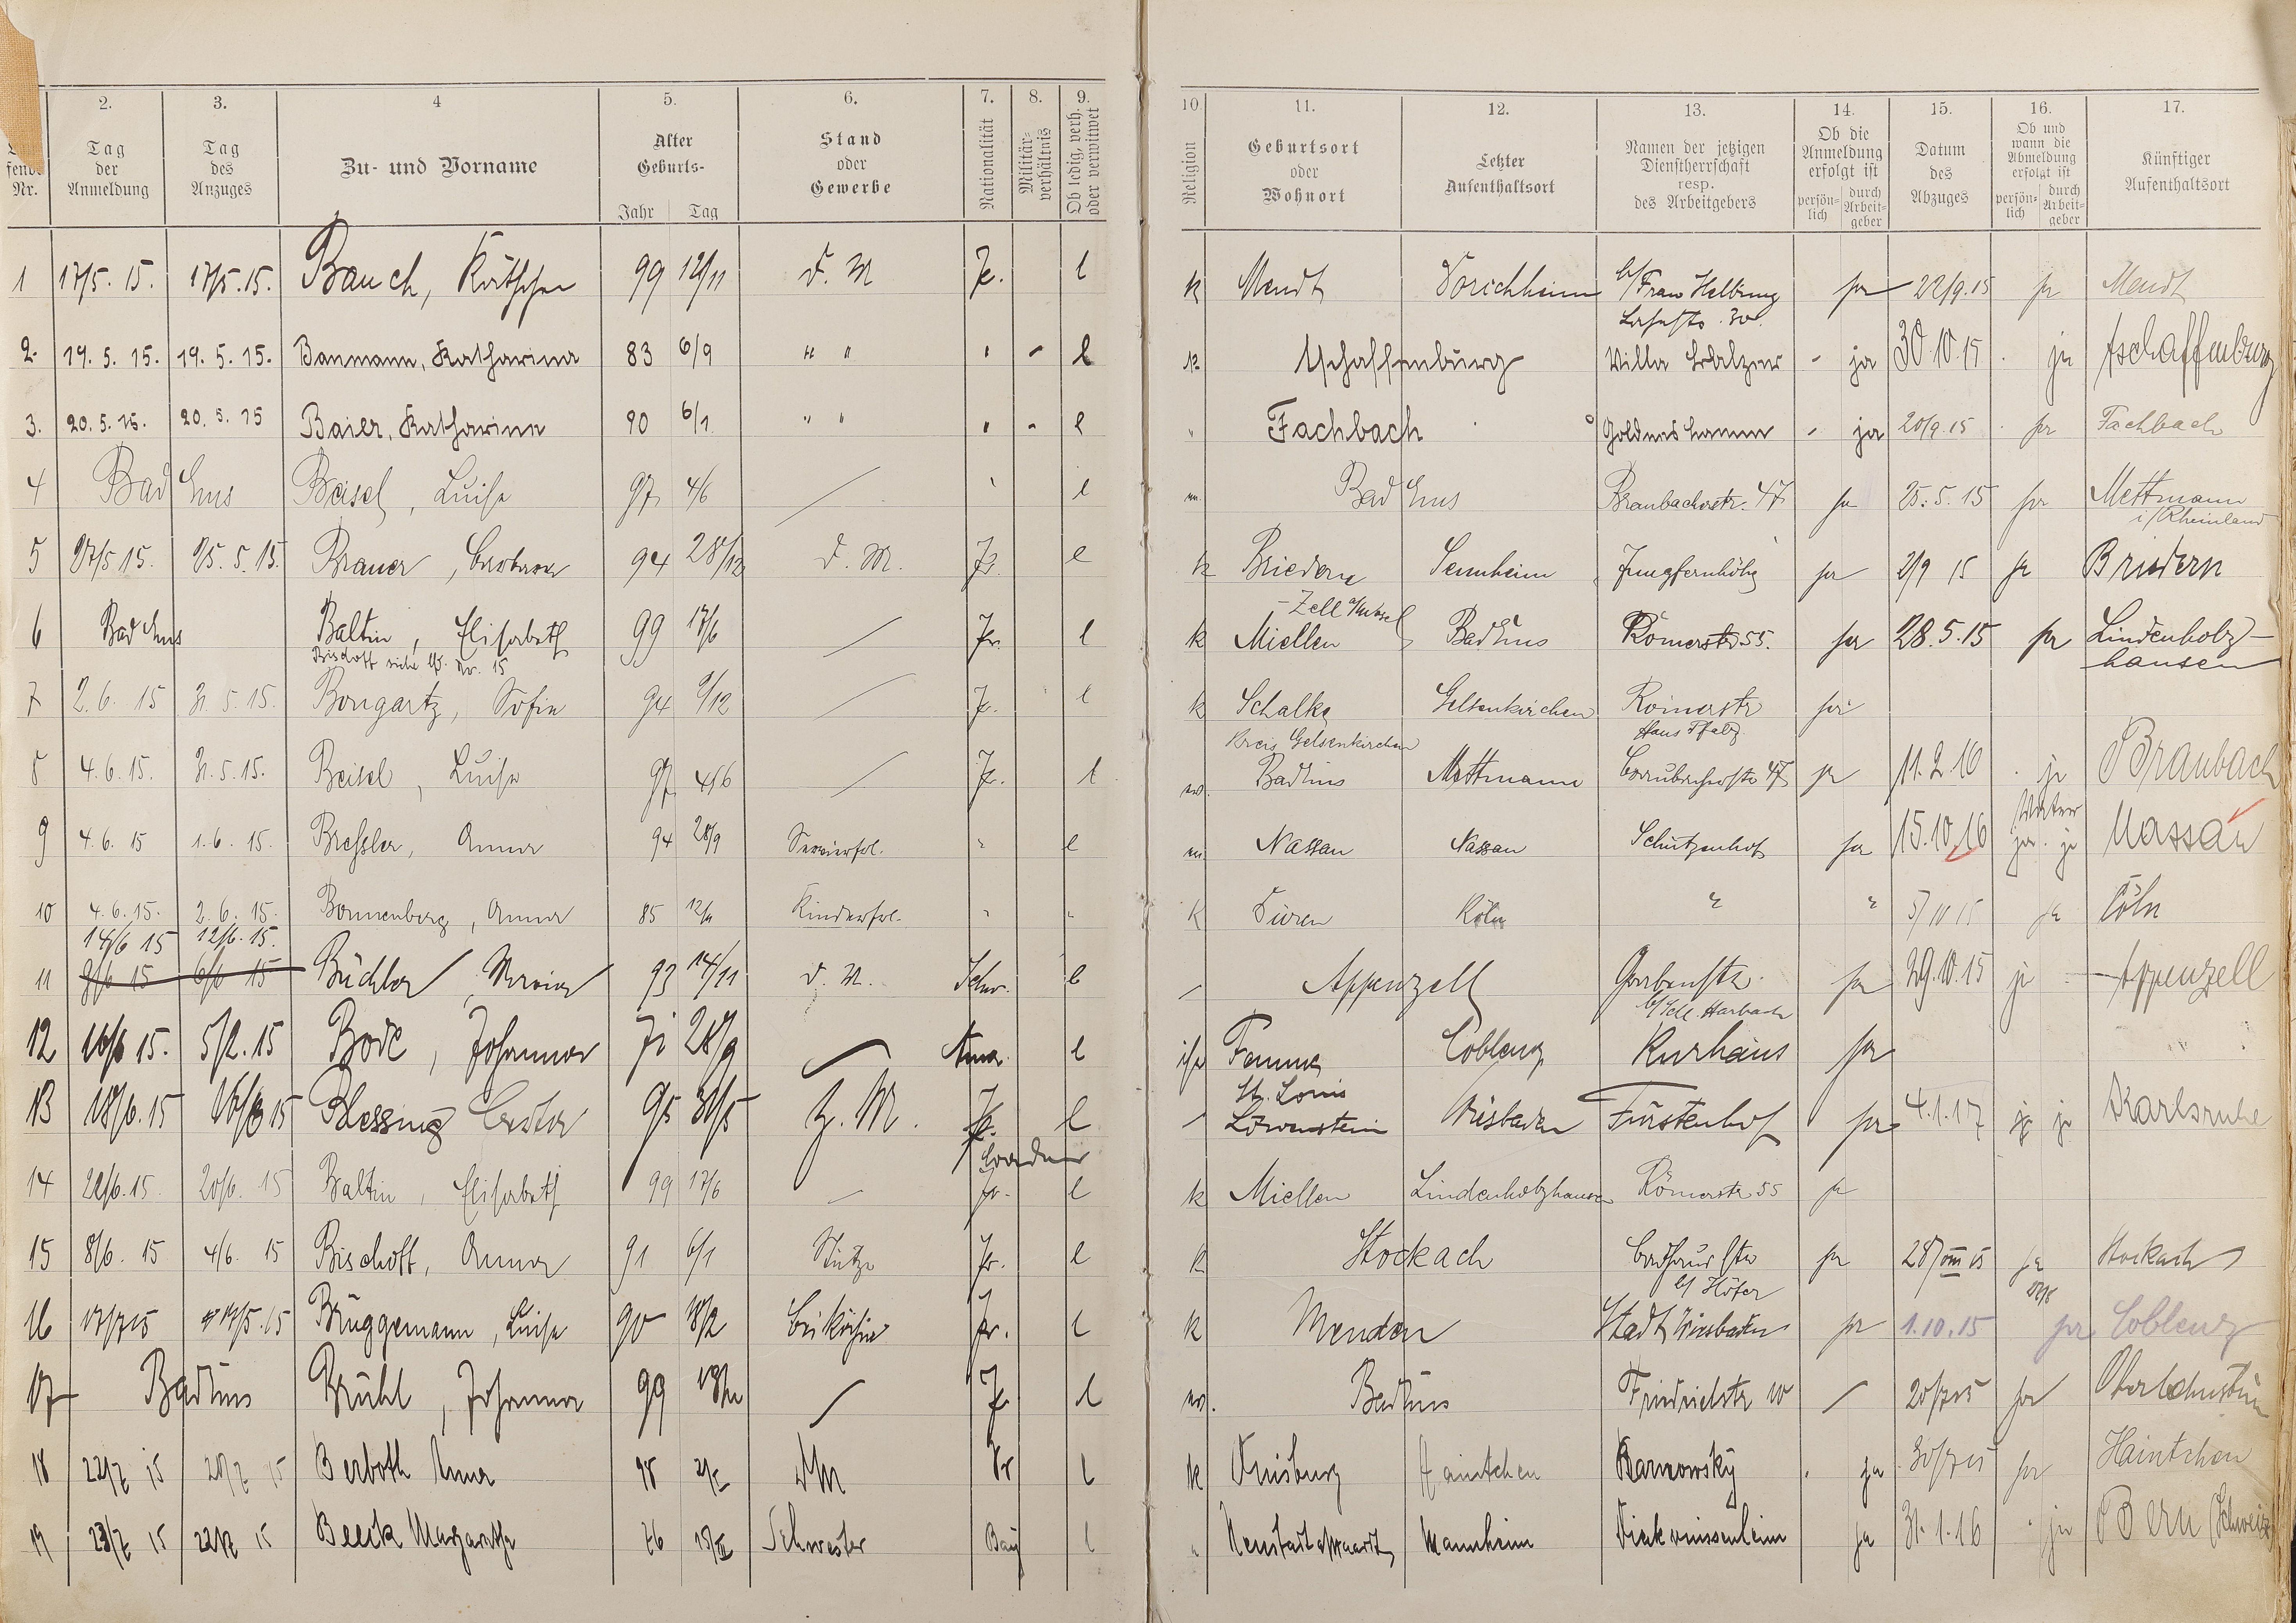 2. 3. 4 5. 6. 7. 8. 9. 10. 11. 12. 13. 14. 15. 16. 17.
fende Nr.
Tag der Anmeldung
Tag des Anzuges
Zu- und Vorname
Alter Geburts-
Jahr Tag
Stand oder Gewerbe
Nationalität
Militär-verhältnis
Ob ledig, verh. oder verwitwet
Religion
Geburtsort oder Wohnort
Letzter Aufenthaltsort
Namen der jetzigen Dienstherrschaft resp. des Arbeitgebers
Ob die Anmeldung erfolgt ist
persön-lich durch Arbeit-geber
Datum des Abzuges
Ob und wann die Abmeldung erfolgt ist
persön-lich durch Arbeit-geber
Künftiger Aufenthaltsort
1 17/5. 15. 17/5. 15. Bauch, Käthchen 99 12/11 D. M Pr. l k Mendt b/Frau Helbung ja 22/9. 15 ja Mendt
2. 19. 5. 15. 19. 5. 15. Banmann, Katharina 83 6/9 " " " - l Aschaffenburg Villa Balzer - ja 30. 10. 15 . ja Aschaffenburg
3. 20. 5. 15. 20. 5. 15 Baier, Katharina 90 6/1 " " " - l " Fachbach - ja 20/9. 15 . ja Fachbach
4 Bad Ems Beisel, Luise 97 4/6 l Bad Ems Braubacherstr. 47 ja 25. 5. 15 ja Mettmann
i/Rheinland
5 27/5 15. 25. 5. 15. Brauer, Barbara 94 28/12 D. M. Pr. l k Briedern Sennheim Jungfernhöhe ja 2/9 15 ja Briedern
- Zell a/Mosel
6 Bad Ems Baltin, Elisabeth 99 17/6 Pr. l k Miellen Bad Ems Römerstr 55. ja 28. 5. 15 ja Lindenholz-
hausen
Bischoff siehe lfd. Nr. 15
7 2. 6. 15 31. 5. 15. Bongartz, Sofie 94 9/12 Pr. l k Schalke Gelsenkirchen Römerstr ja
Kreis Gelsenkirchen Haus Pfalz
8 4. 6. 15. 31. 5. 15. Beisel, Luise 97 4/6 Pr. l ev. Bad Ems Mettmann Braubacherstr 47 ja 11. 2. 16 . ja Braubach
9 4. 6. 15 1. 6. 15. Bressler, Anna 94 28/9 Servierfrl. " l ev Nassau Nassau Schützenhof ja 15. 10. 16 ja . ja Nassau
10 4. 6. 15. 2. 6. 15. Bonnenberg, Anna 85 Kinderfrl. " " k Düren Köln " " 5/10 15 ja Cöln
14/6 15 12/6. 15.
11 8/6 15 6/6 15 Büchler, 93 14/11 D. M. Schw. l Appenzell Grabenstr. ja 29. 10. 15 ja - Appenzell
b/Schl. Harbach
12 16/6 15. 5/2. 15 Bode, Johanna 71 28/9 Amer. l Coblenz Kurhaus ja
St. Louis
13 18/6. 15 16/6 15 Blessing 95 31/5 Z. M. l Löwenstein Wiesbaden Fürstenhof ja 4. 1. 17 ja ja Karlsruhe
14 22/6. 15 20/6. 15 Baltin, Elisabeth 99 17/6 Pr. l k Miellen Lindenholzhausen Römerstr 55 ja
15 8/6. 15 4/6. 15 Bischoff, Anna 91 6/1 Stütze Pr. l k Stockach Badhausstr ja 28/VIII 15 ja Stockach
b/ Höfer
16 17/7 15 17/5. 15 Brüggemann, Luise 90 18/2 Beiköchin Pr. l k Menden Stadt Wiesbaden ja 1. 10. 15 ja Coblenz
17 Bad Ems Brühl, Johanna 99 Pr l ev. Bad Ems Friedrichstr 10 20/7 15 ja Oberlahnstein
18 22/7 15 20/7 15 Berboth Anna 98 DM Pr l k Duisburg Haintchen Barnowsky . ja 30/7 15 ja Haintchen
19 23/7 15 22/7 15 Beeck Margarethe 76 Schwester Bay l " Neustadt a/Haardt Mannheim ja 31. 1. 16 " ja Bern (Schweiz)